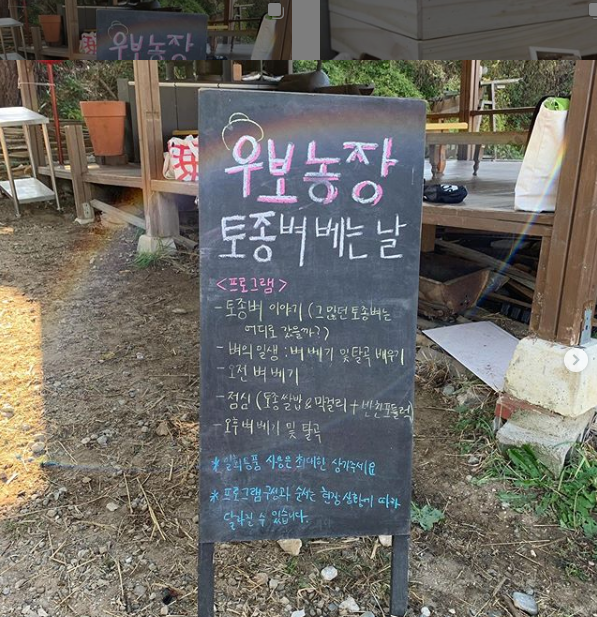 우보농장
우보농장
토종벼 베는 날
<프로그램>
- 토종벼 이야기 (그 많던 토종벼는
어디로 갔을까?)
- 벼의 일생 : 벼 베기 및 탈곡 배우기
- 오전 벼 베기
- 점심 (토종쌀밥 & 막걸리 + 반찬포틀럭)
- 오후 벼 베기 및 탈곡
* 일회용품 사용은 최대한 삼가주세요
* 프로그램 구성과 순서는 현장 상황에 따라
달라질 수 있습니다.